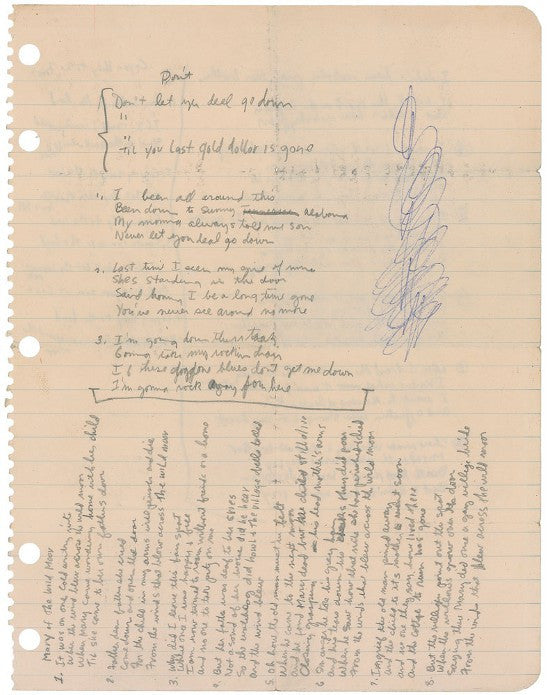 Don't
Don't let you deal go down
"
"
til you last gold dollar is gone
1. I been all around this
Been down to sunny Alabama
My momma always told me son
Never let you deal go down
2. Last time I seen my girl of mine
She's standing in the door
Said honey I be a long time gone
You've never see around no more
3. I'm going down the track
Gonna take my rockin chair
If these doggone blues don't get me down
I'm gonna rock away from here
Mary of the Wild Moor
1. It was on one cold winter night
When the wind blew across the wild moor
When Mary came wandering home with her child
Til she came to her own father's door
2. Father dear father she cried
Come down and open the door
Or the child in my arms will perish and die
From the winds that blew across the wild moor
3. Why did I leave this fair spot
Where once I was happy & free
I am now doomed to roam without friends or a home
And no one to take pity on me
4. But the father was deaf to her cries
Not a sound of her voice did he hear
So the watchdog did howl & the village bells tolled
And the wind blew
5. Oh how the old man must have felt
When he came to the next morn
And he found Mary dead but the child still alive
Closely in his dead mother's arms
6.
When he saw how that night she had perished and died
From the winds that blew across the wild moor
7. In grief the old man pined away
And the child to its mother went soon
And no one they say has lived there
And the cottage to ruin has gone
8. But the villagers point out the spot
Where the willows over the door
Saying there Mary died once a gay village bride
From the winds that blew across the wild moor